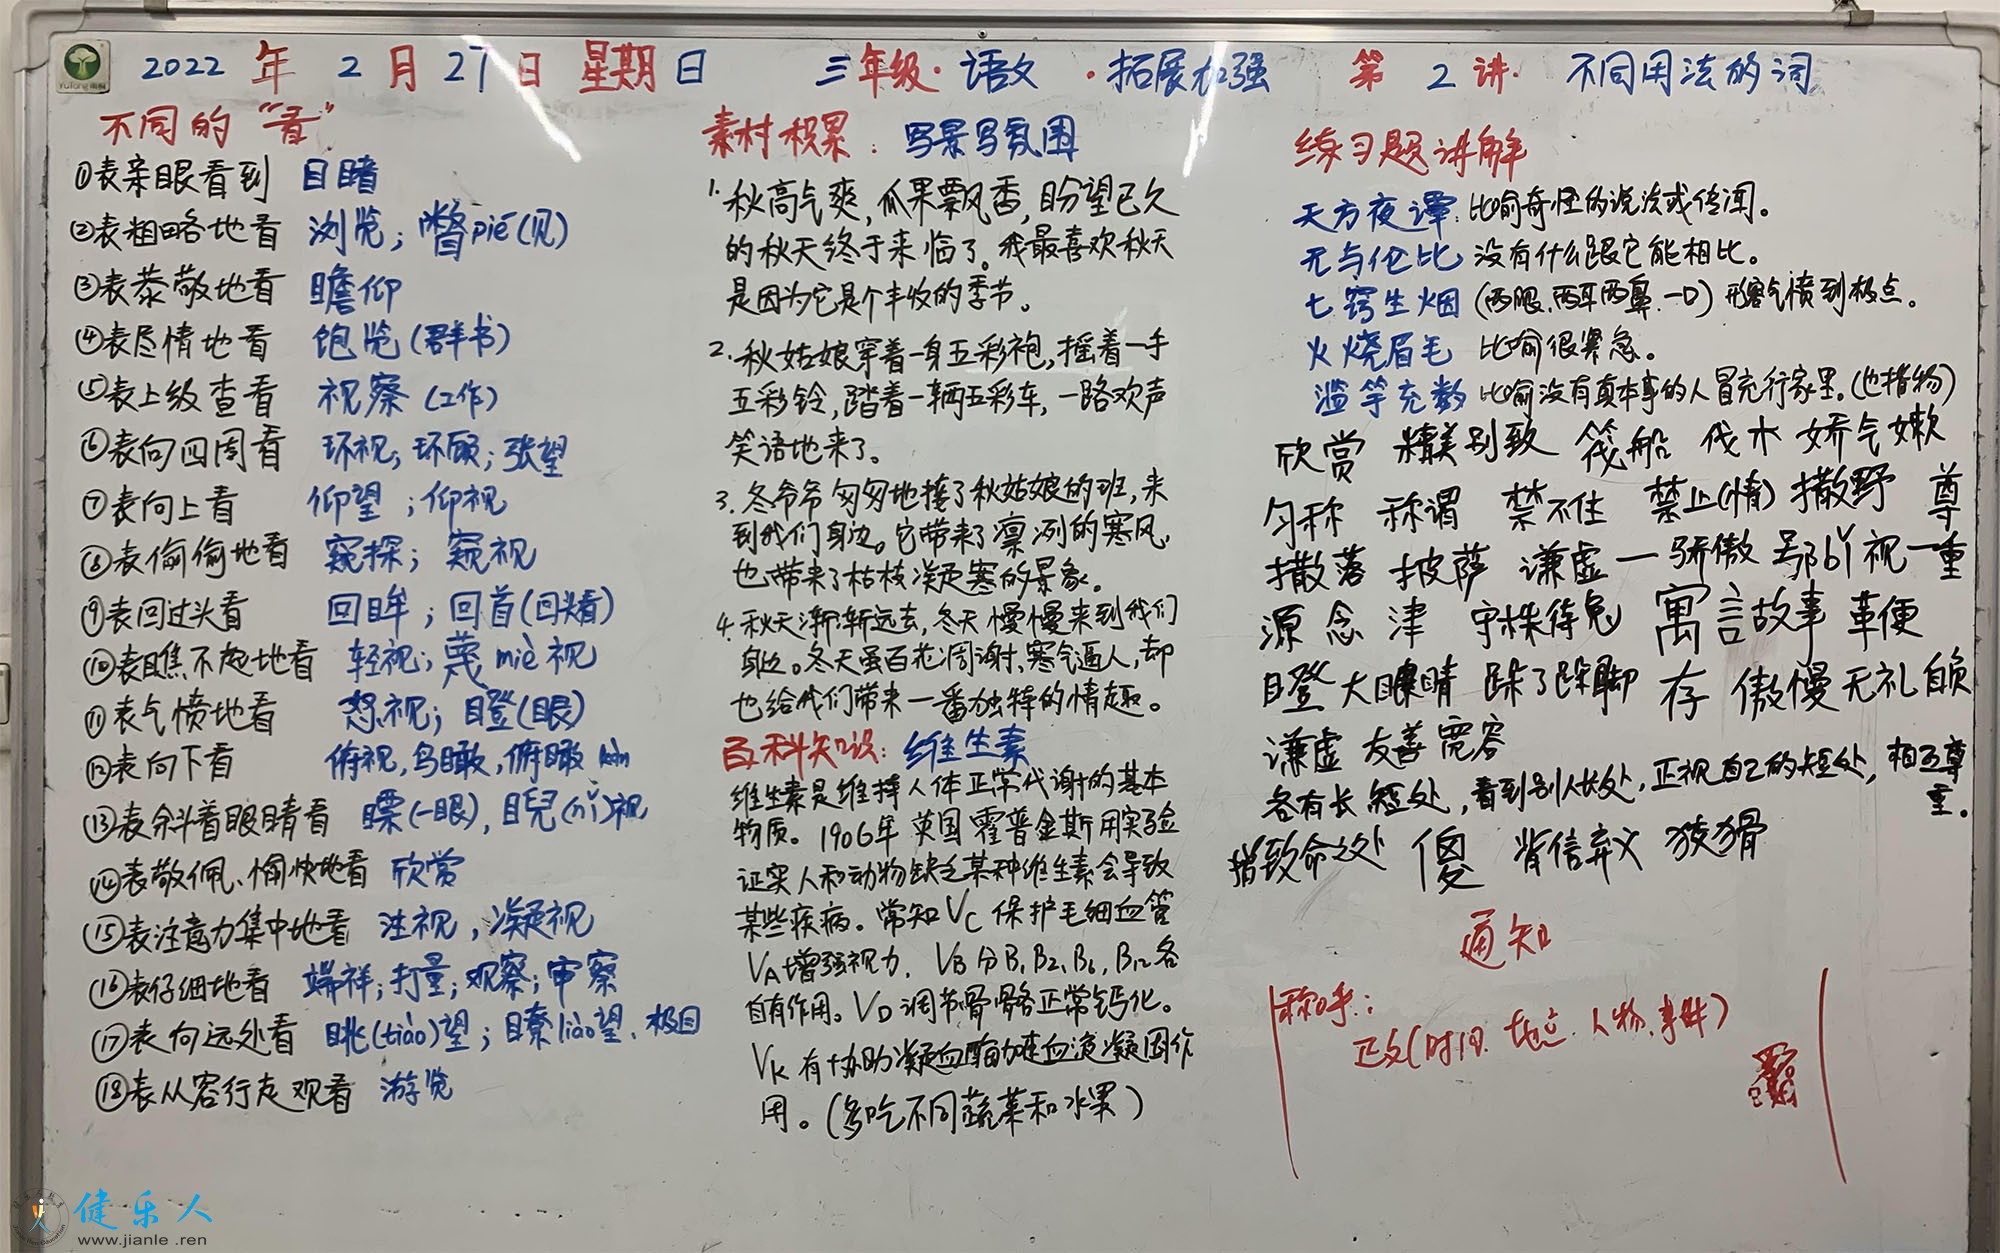 2022年2月27日 星期日 三年级·语文·拓展加强 第2讲·不同用法的词
不同的“看”
①表亲眼看到 目睹
②表粗略地看 浏览；瞥piē(见)
③表恭敬地看 瞻仰
④表尽情地看 饱览(群书)
⑤表上级查看 视察(工作)
⑥表向四周看 环视；环顾；张望
⑦表向上看 仰望；仰视
⑧表偷偷地看 窥探；窥视
⑨表回过头看 回眸；回首(回头看)
⑩表瞧不起地看 轻视；蔑miè视
⑪表气愤地看 怒视；瞪(眼)
⑫表向下看 俯视,鸟瞰,俯瞰kàn
⑬表斜着眼睛看 瞟(一眼),睨(nì)视
⑭表敬佩、愉快地看 欣赏
⑮表注意力集中地看 注视,凝视
⑯表仔细地看 端详；打量；观察；审察
⑰表向远处看 眺(tiào)望；瞭liào望、极目
⑱表从容行走观看 游览
素材积累：写景写氛围
1.秋高气爽,瓜果飘香,盼望已久
的秋天终于来临了。我最喜欢秋天
是因为它是个丰收的季节。
2.秋姑娘穿着一身五彩袍,摇着一手
五彩铃,踏着一辆五彩车,一路欢声
笑语地来了。
3.冬爷爷匆匆地接了秋姑娘的班,来
到我们身边。它带来了凛冽的寒风,
也带来了枯枝凝寒的景象。
4.秋天渐渐远去,冬天慢慢来到我们
身边。冬天虽百花凋谢,寒气逼人,却
也给我们带来一番独特的情趣。
百科知识：维生素
维生素是维持人体正常代谢的基本
物质。1906年英国霍普金斯用实验
证实人和动物缺乏某种维生素会导致
某些疾病。常知VC保护毛细血管
VA增强视力. VB分B1,B2,B6,B12各
自有作用。VD调节骨骼正常钙化。
VK有协助凝血酶加速血液凝固作
用。(多吃不同蔬菜和水果)
练习题讲解
天方夜谭：比喻奇怪的说法或传闻。
无与伦比 没有什么跟它能相比。
七窍生烟(两眼、两耳两鼻、一口)形容气愤到极点。
火烧眉毛 比喻很紧急。
滥竽充数 比喻没有真本事的人冒充行家里。(也指物)
欣赏 精美别致 筏船 伐木 娇气嫩
匀称 称谓 禁不住 禁止(情) 撒野 尊
撒落 披萨 谦虚—骄傲 鄙bǐ视—重
源 念 津 守株待兔 寓言故事 革便
瞪大眼睛 跺了跺脚 存 傲慢无礼
谦虚 友善 宽容
各有长短处,看到别人长处,正视自己的短处,相互尊
重。
指致命之处 傻 背信弃义 狡猾
通知
称呼：
正文(时间、地点、人物、事件)
健乐人
www.jianle.ren